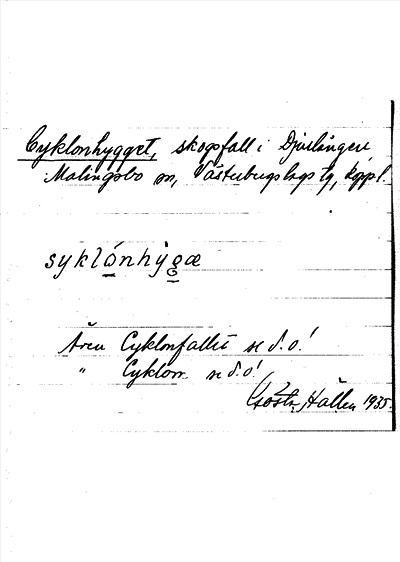 Cyklonhygget, skogsfall i Djurlången,
Malingsbo sn, Västerbergslags tg, Kppl.
syklónhỳgæ
Även Cyklonfallet se d.o!
" Cyklon se d.o!
Gösta Hallén 1935.